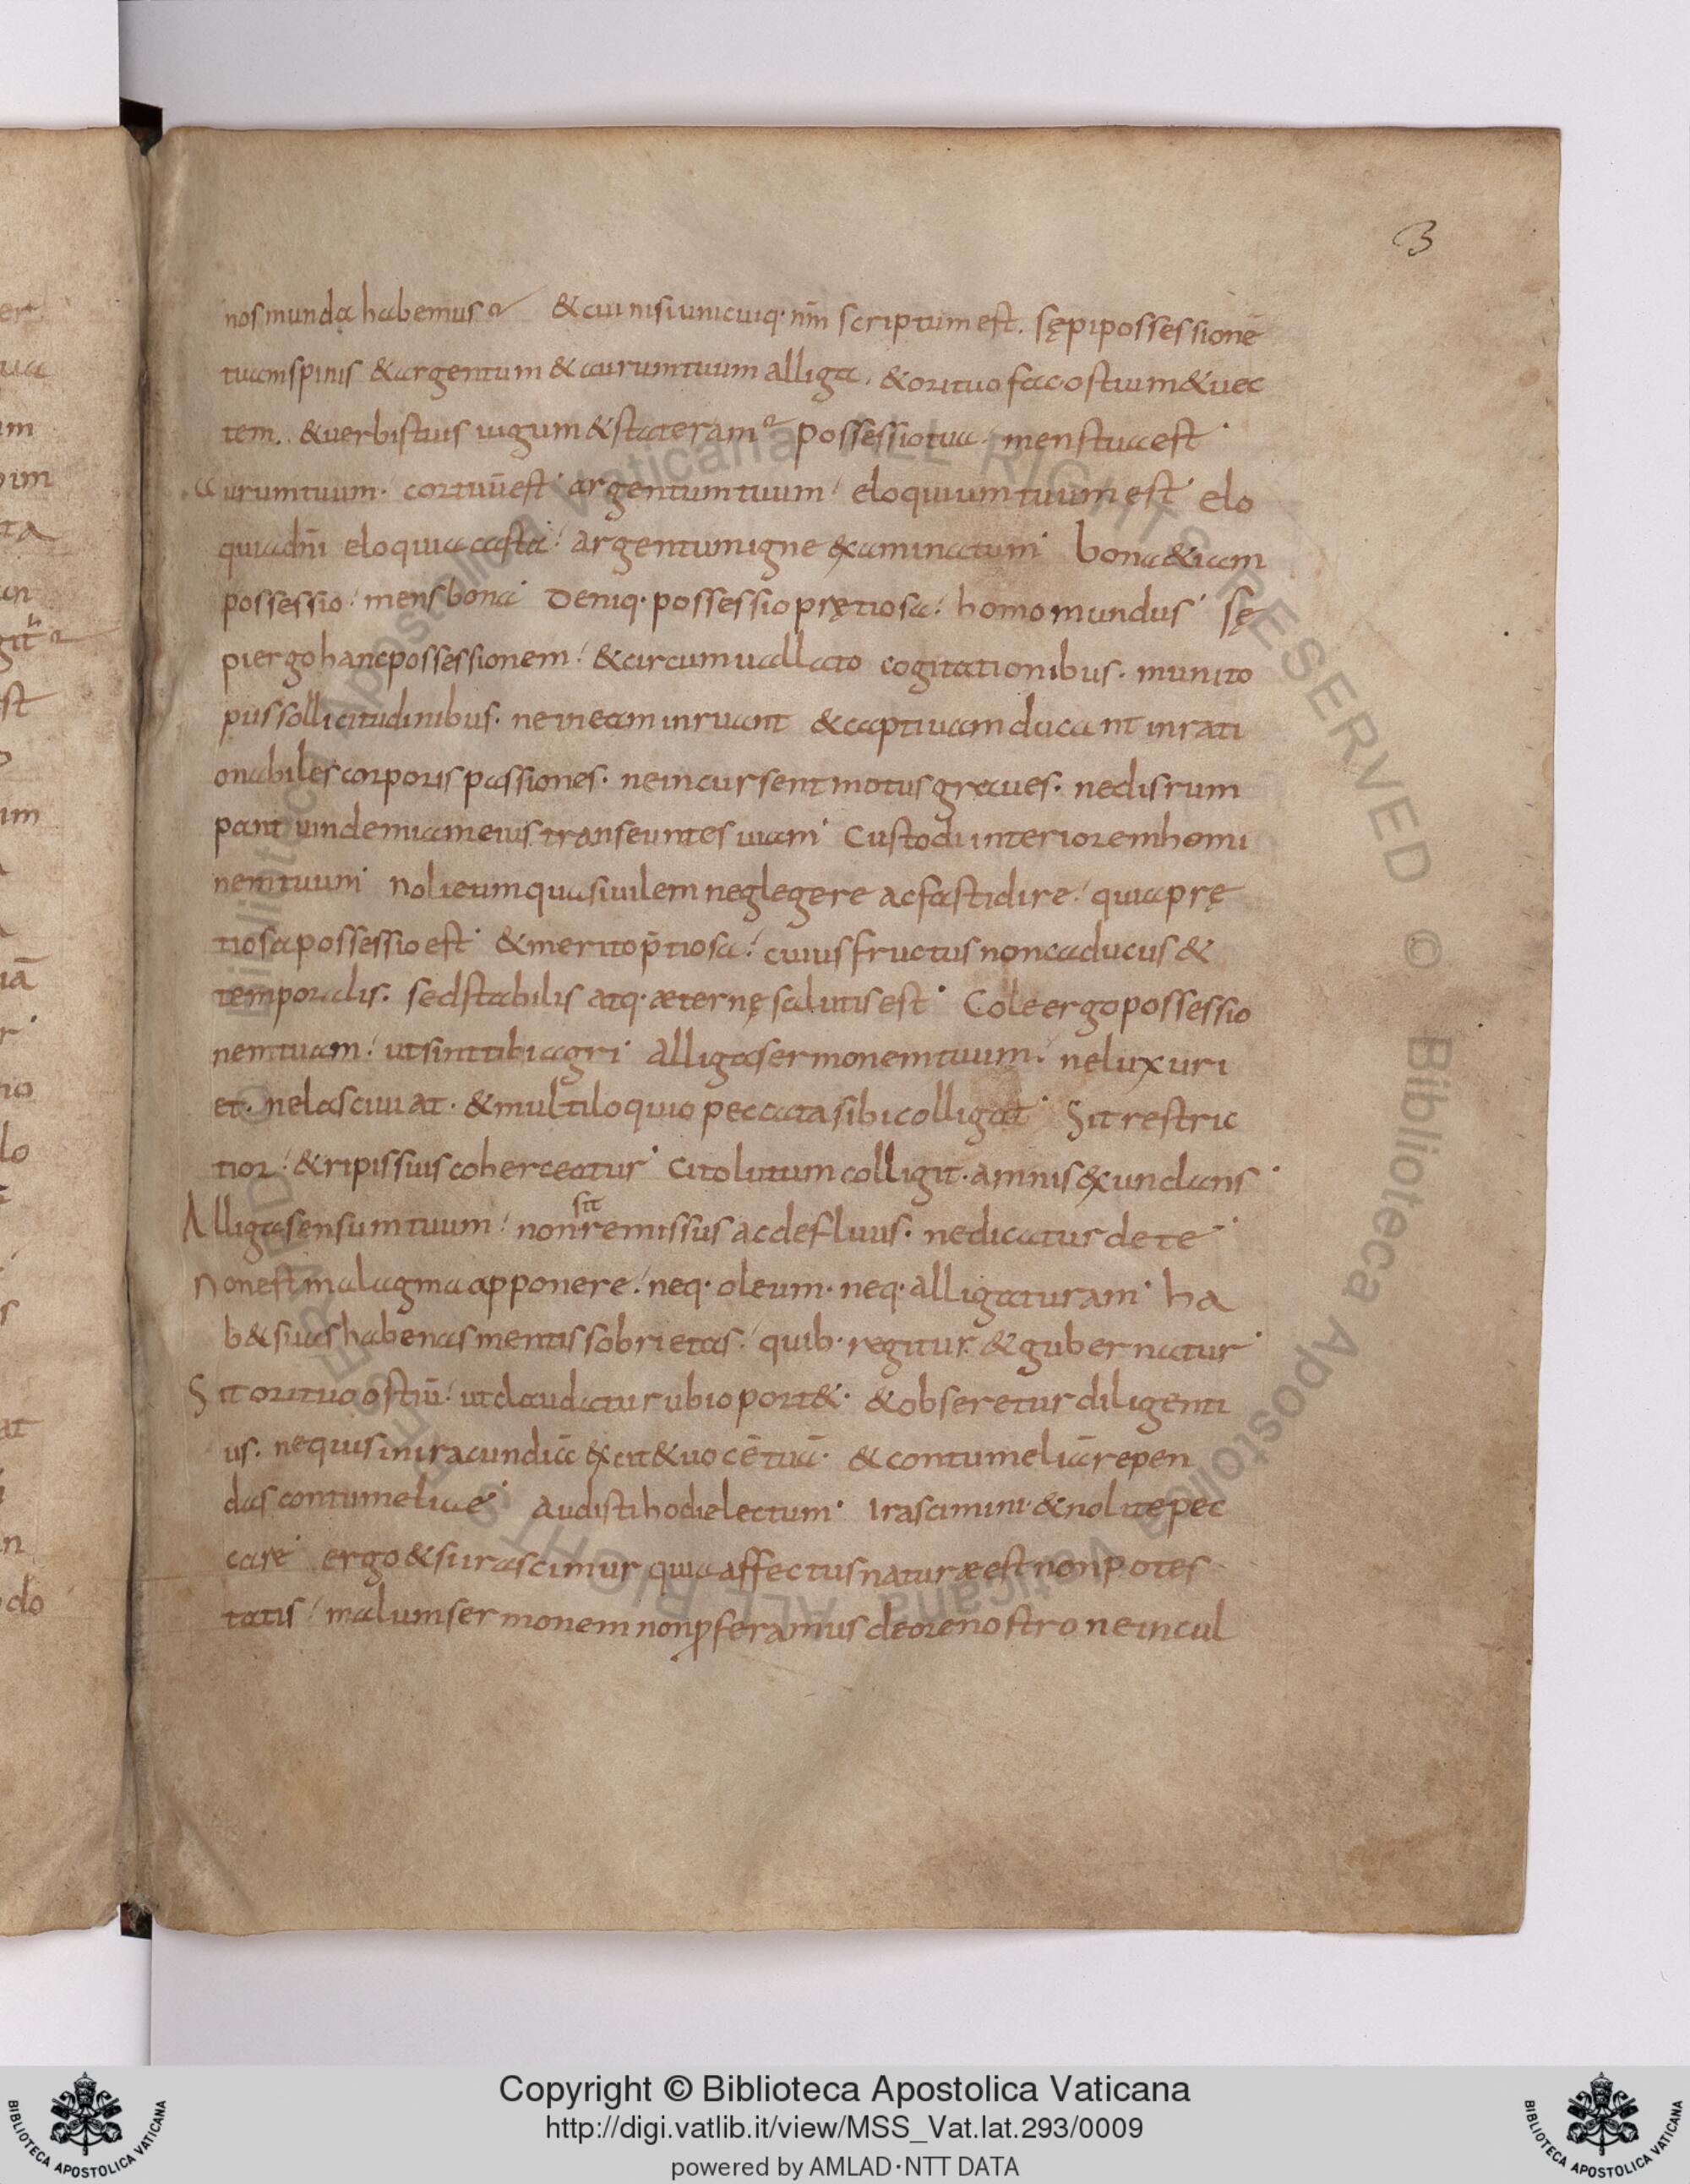 3
nos munda habemus? & cui nisi unicuiq· nr̄m scriptum est. sępi possessionē
tuam spinis & argentum & aurum tuum alliga. & ori tuo fac ostium & uec
tem. & uerbis tuis iugum & stateram? possessio tua mens tua est·
aurum tuum· cor tuū est· argentum tuum eloquium tuum est· elo
quia dn̄i eloquia casta· argentum igne examinatum· bona &iam
possessio mens bona· Deniq· possessio prętiosa homo mundus· sę
pi ergo hanc possessionem & circumuallato cogitationibus· munito
piis sollicitudinibus· ne in eam inruant & captiuam ducant inrati
onabiles corporis passiones· ne incursent motus graues· ne disrum
pant uindemiam eius transeuntes uiam· Custodi interiorem homi
nem tuum· Noli eum quasi uilem neglegere ac fastidire quia prę
tiosa possessio est· & merito p̄tiosa cuius fructus non caducus &
temporalis· sed stabilis atq· æternę salutis est· Cole ergo possessio
nem tuam ut sint tibi agri· alliga sermonem tuum ne luxuri
et· ne lasciuiat· & multiloquio peccata sibi colligat· Sit restric
tior & ripis suis coherceatur· Cito lutum colligit· amnis exundans·
Alliga sensum tuum non sit remissus ac defluus· ne dicatur de te·
Non est malagma apponere neq· oleum· neq· alligaturam· ha
b& suas habenas mentis sobrietas quib· regitur & gubernatur·
Sit ori tuo ostiū ut claudatur ubi oport&· & obseretur diligenti
us· ne quis in iracundiā excit& uocē tuā· & contumeliā repen
das contumeliae· audisti hodie lectum· Irascimini· & nolite pec
care· ergo & si irascimur quia affectus naturæ est non potes
tatis malum sermonem non ꝓferamus de ore nostro ne in cul
er
ua
im
ta
an
st
im
iā
io
lo
at
n
do
Copyright © Biblioteca Apostolica Vaticana
http://digi.vatlib.it/view/MSS_Vat.lat.293/0009
powered by AMLAD·NTT DATA
BIBLIOTECA APOSTOLICA VATICANA
BIBLIOTECA APOSTOLICA VATICANA
© Biblioteca Apostolica Vaticana ALL RIGHTS RESERVED © Biblioteca Apostolica Vaticana ALL RIGHTS RESERVED